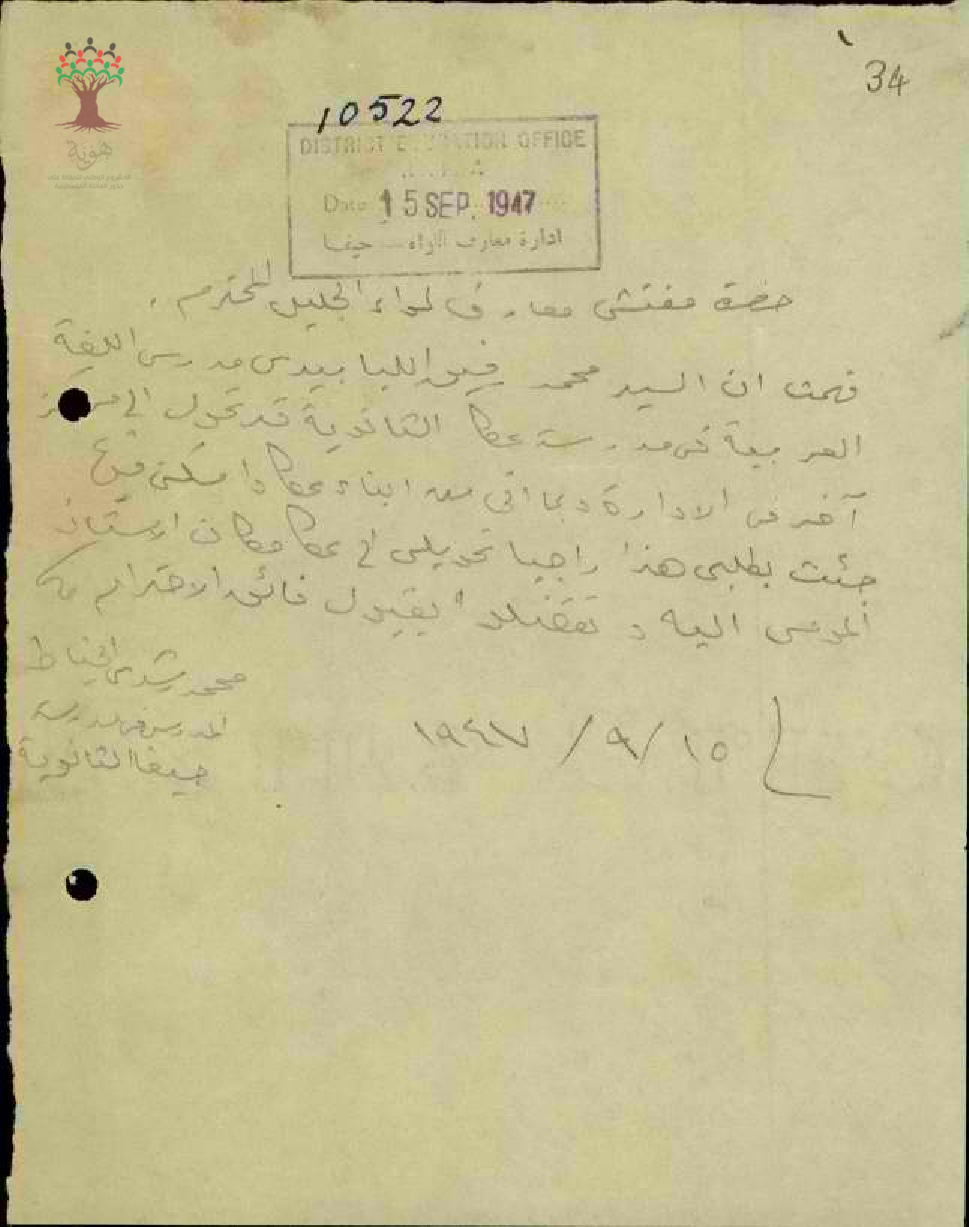 34
10522
DISTRICT EDUCATION OFFICE
Date 15 SEP. 1947
ادارة معارف اللواء حيفا
هوية
حضرة مفتش معارف لواء الجليل المحترم،
فهمت ان السيد محمد رفيق اللبابيدي مدرس اللغة
العربية في مدرسة عكا الثانوية قد تحول الى مركز
آخر في الادارة وبما اني من ابناء عكا واسكن فيها
جئت بطلبي هذا راجيا تحويلي الى عكا مكان الاستاذ
المومى اليه وتفضلوا بقبول فائق الاحترام
محمد رشدي الخياط
المدرس في مدرسة
حيفا الثانوية
١٥/ ٩/ ١٩٤٧